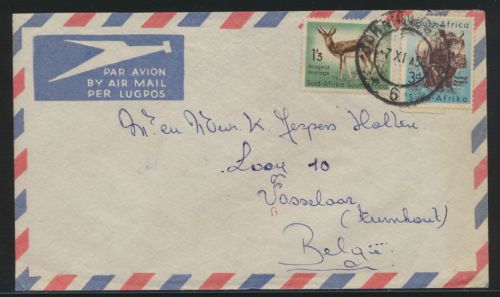 PAR AVION
BY AIR MAIL
PER LUGPOS
1'3
Posgeld
Postage
Suid-Afrika-South
Suid-Afrika
3d
Suid-Afrika
7 XI
6
M. en Mevr. K. Jespers Holten
Loon 10
Vosselaar
(Turnhout)
België